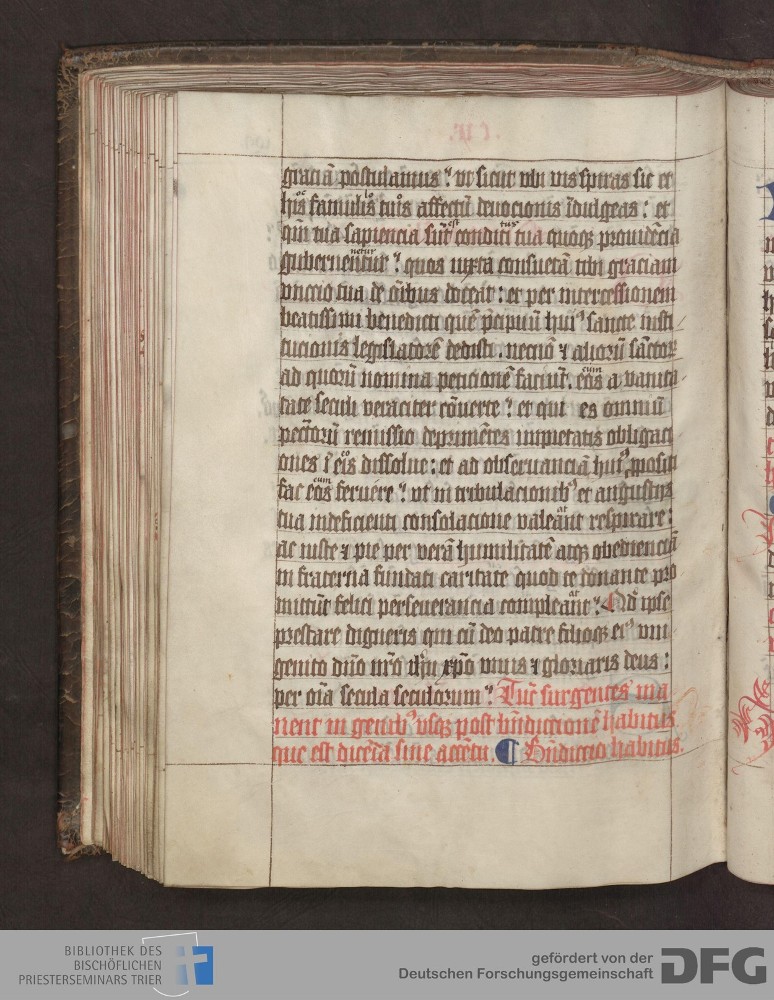 graciā postulamus ? vt sicut vbi vis spiras sic et
hiˢ famulis tuis affectū deuocionis īdulgeas : et
qm̄ tua sapiencia sūt condicti tua quoqꝫ prouidēcia
gubernentur ? quos iuxta consuetā tibi graciam
vnctio tua de oībus doceat : et per intercessionem
beatissimi benedicti quē p̄cipuū huiꝰ sancte insti
tucionis legislatorē dedisti . necnō ⁊ alioꝝ sāctoꝝ
ad quorū nomina peticionē faciūt . eos a vanita
tate seculi veraciter cōuerte ? et qui es omniū
peccatorū remissio deprimētes impietatis obligaci
ones ī eis dissolue : et ad obseruanciā huiꝰ ꝓpositi
fac eos feruere ? vt in tribulacionibꝰ et angustijs
tua indeficienti consolacione valeant respirare :
ac iuste ⁊ pie per verā humilitatē atqꝫ obedienciā
in fraterna fundati caritate quod te donante pro
mittūt felici perseuerancia compleant ? Qd̄ ipse
prestare digneris qui cū deo patre filioqꝫ eiꝰ vni
genito dn̄o nr̄o ihū xp̄o viuis ⁊ gloriaris deus :
per oīa secula seculorum ? Tūc surgentes ma
nent in genibꝰ vsqꝫ post bn̄dictionē habitus
que est dicēda sine accētu . ¶ Bn̄dictio habitus .
BIBLIOTHEK DES
BISCHÖFLICHEN
PRIESTERSEMINARS TRIER
gefördert von der
Deutschen Forschungsgemeinschaft
DFG